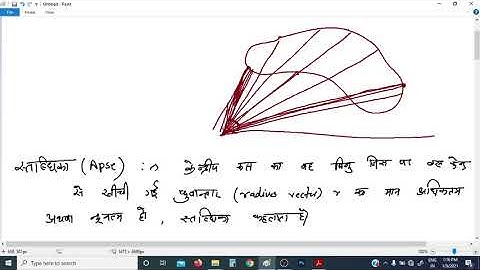 Untitled - Paint
File Home View
स्तब्धिका (Apse) :- केन्द्रीय कक्ष का वह बिन्दु जिस पर बल केन्द्र
से खींची गई ध्रुवान्तर (radius vector) r का मान अधिकतम
अथवा न्यूनतम हो, स्तब्धिका कहलाता है।
Type here to search
ENG
IN